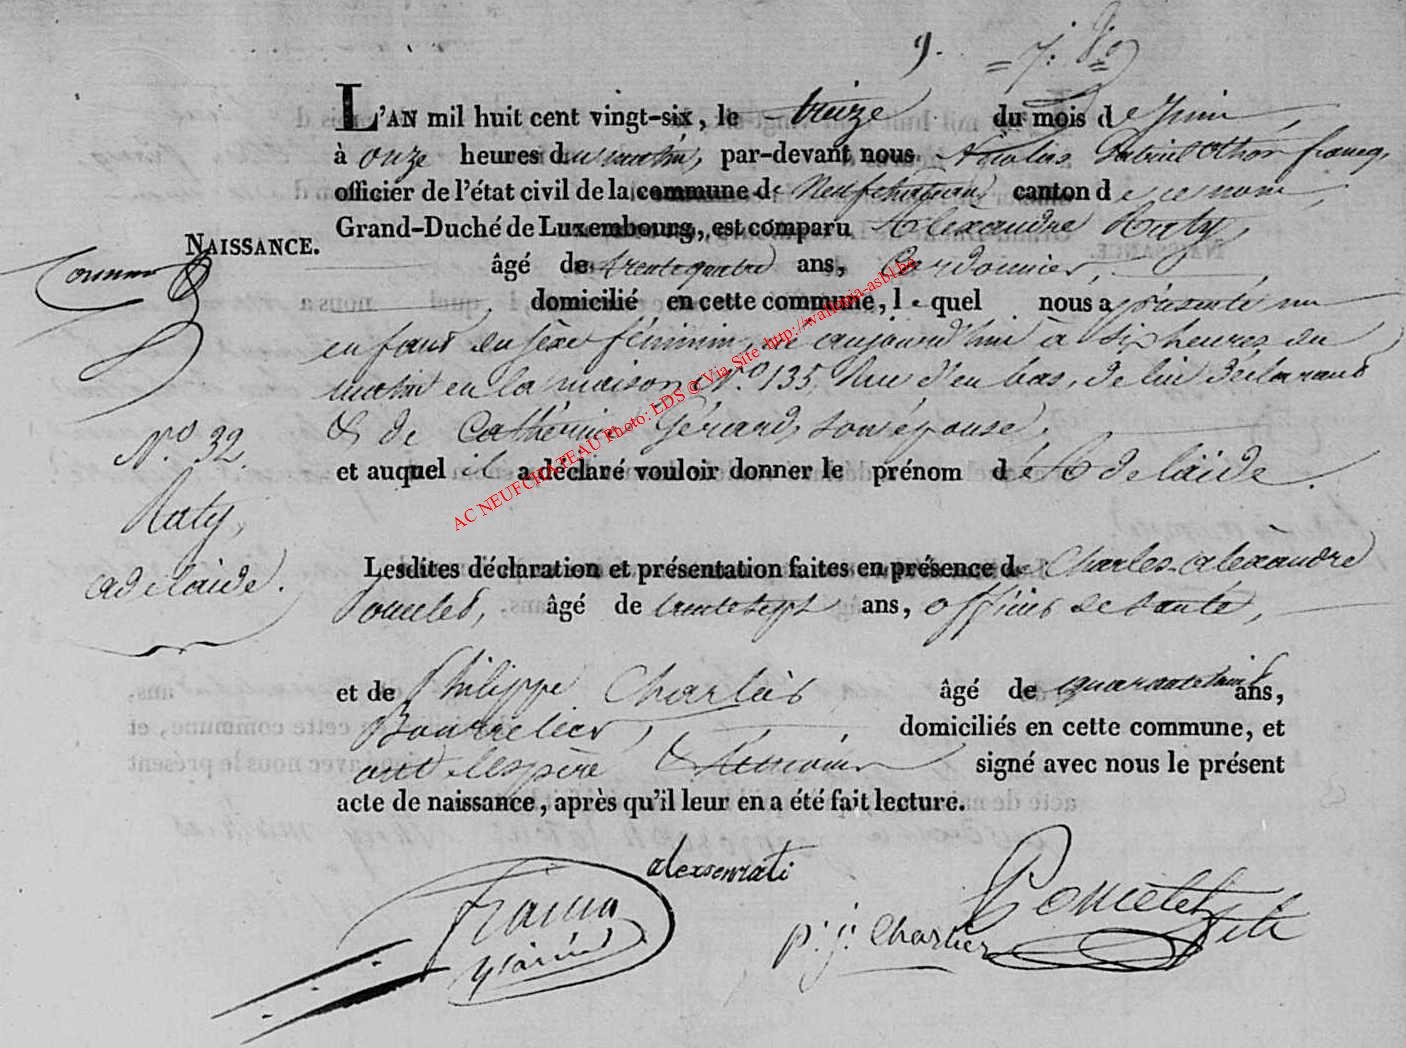 9. = 7: 8º =
L'AN mil huit cent vingt-six, le treize du mois de Juin,
à onze heures du matin, par-devant nous Nicolas Gabriel Othon francq,
officier de l'état civil de la commune de Neufchateau canton de ce nom,
Grand-Duché de Luxembourg, est comparu Alexandre Raty,
NAISSANCE.
âgé de trente quatre ans, Cordonnier,
domicilié en cette commune, lequel nous a présenté un
enfant du sèxe féminin, né aujourd'hui à six heures du
matin en la maison N.º 135, Rue d'en bas, de lui déclarant
& de Cathérine Gérard, son épouse,
Nº 32.
et auquel il a déclaré vouloir donner le prénom d'Adelaïde.
Raty,
adelaide.
Lesdites déclaration et présentation faites en présence de Charles-alexandre
Poncelet, âgé de trente sept ans, officier de santé,
et de Philippe Charlier âgé de quarante huit ans,
Bourrelier, domiciliés en cette commune, et
ont le père & témoins signé avec nous le présent
acte de naissance, après qu'il leur en a été fait lecture.
alexsenrati
Poncelet
p: j: Charlier
AC NEUFCHATEAU Photo: LDS © Via Site http://wallonia-asbl.be